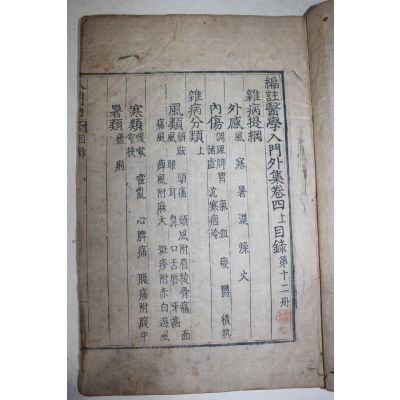 編註醫學入門外集卷四上目錄 第十二冊
雜病提綱
外感 風 寒 暑 濕 燥 火
內傷 調理脾胃 氣 血 痰 鬱 積熱
諸虛 沈寒痼冷
雜病分類上
風類 頭眩 頭痛 頭風附眉稜骨痛 面
風 眼 耳 鼻 口舌唇 牙齒
痛風 痹風附麻木 斑疹附赤白遊風
寒類 咳嗽 霍亂 心脾痛 腹痛附腹中
窄狹
暑類 瘧 痢